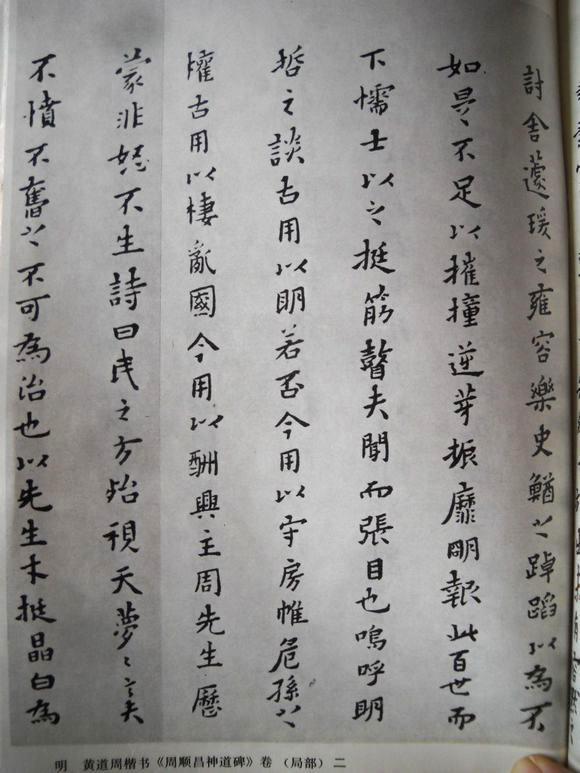 討舍蘧瑗之雍容樂史鰌之踔蹈以為不
如是不足以摧撞逆芽振靡明報此百世而
下懦士以之挺筋瞽夫聞而張目也嗚呼明
哲之談古用以明若否今用以守房帷危孫之
權古用以棲亂國今用以酬興主周先生歷
蒙非 不生詩曰民之方殆視天夢〻
不憤不奮之不可為治也以先生木挺晶白為
明 黄道周楷书《周顺昌神道碑》卷（局部）二